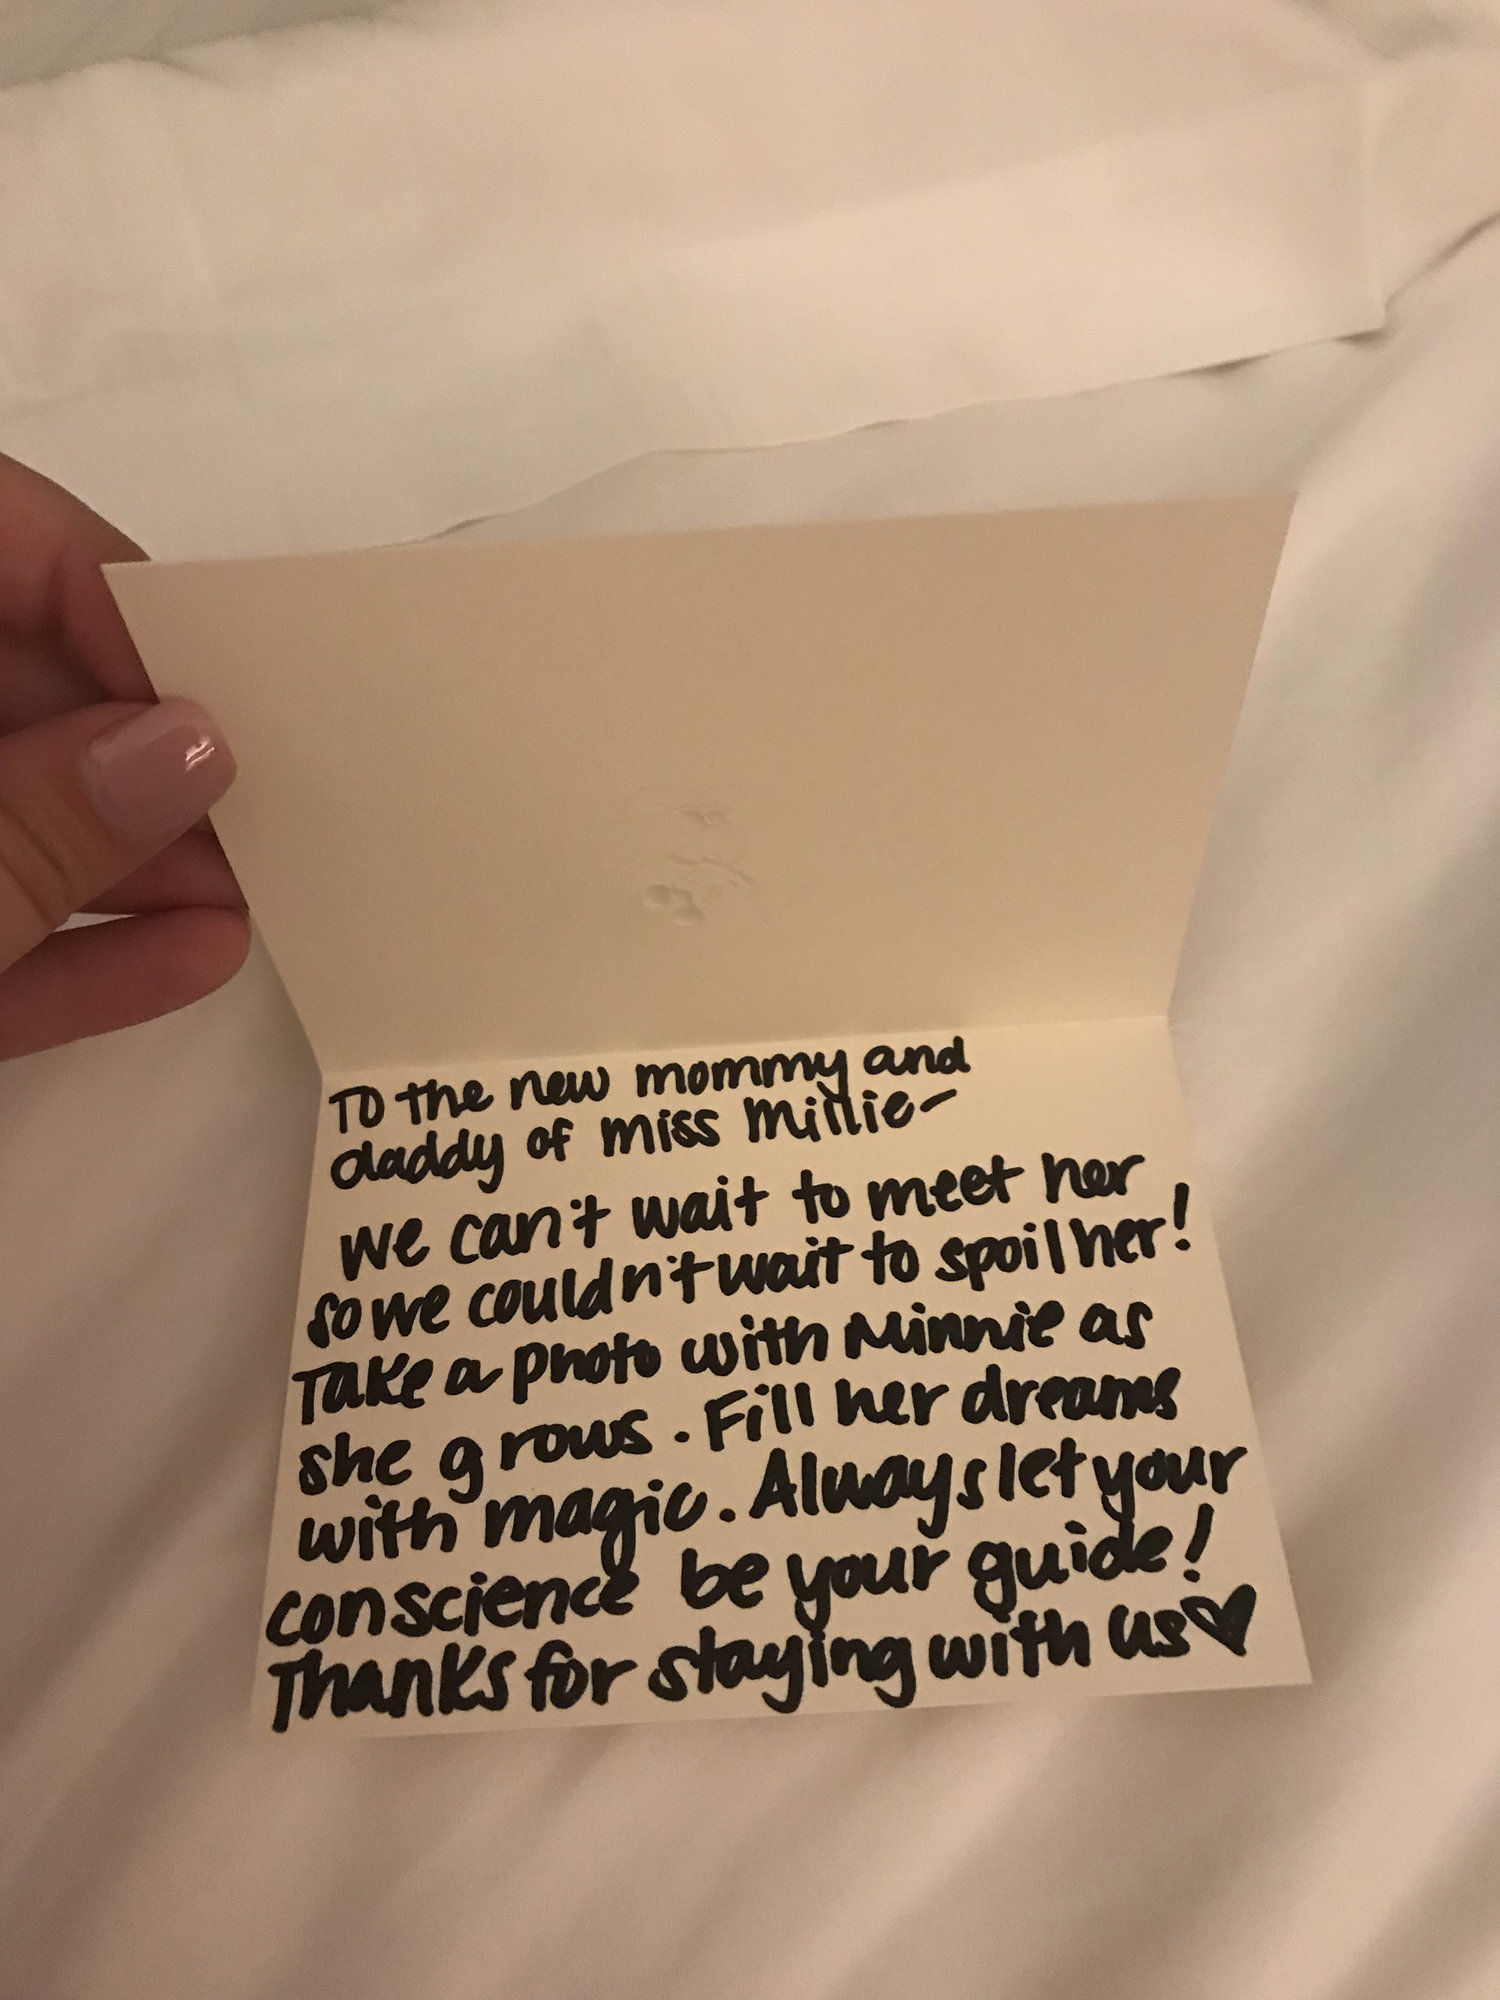 To the new mommy and
daddy of miss Millie-
We can't wait to meet her
so we couldn't wait to spoil her!
Take a photo with Minnie as
she grows. Fill her dreams
with magic. Always let your
conscience be your guide!
Thanks for staying with us♡